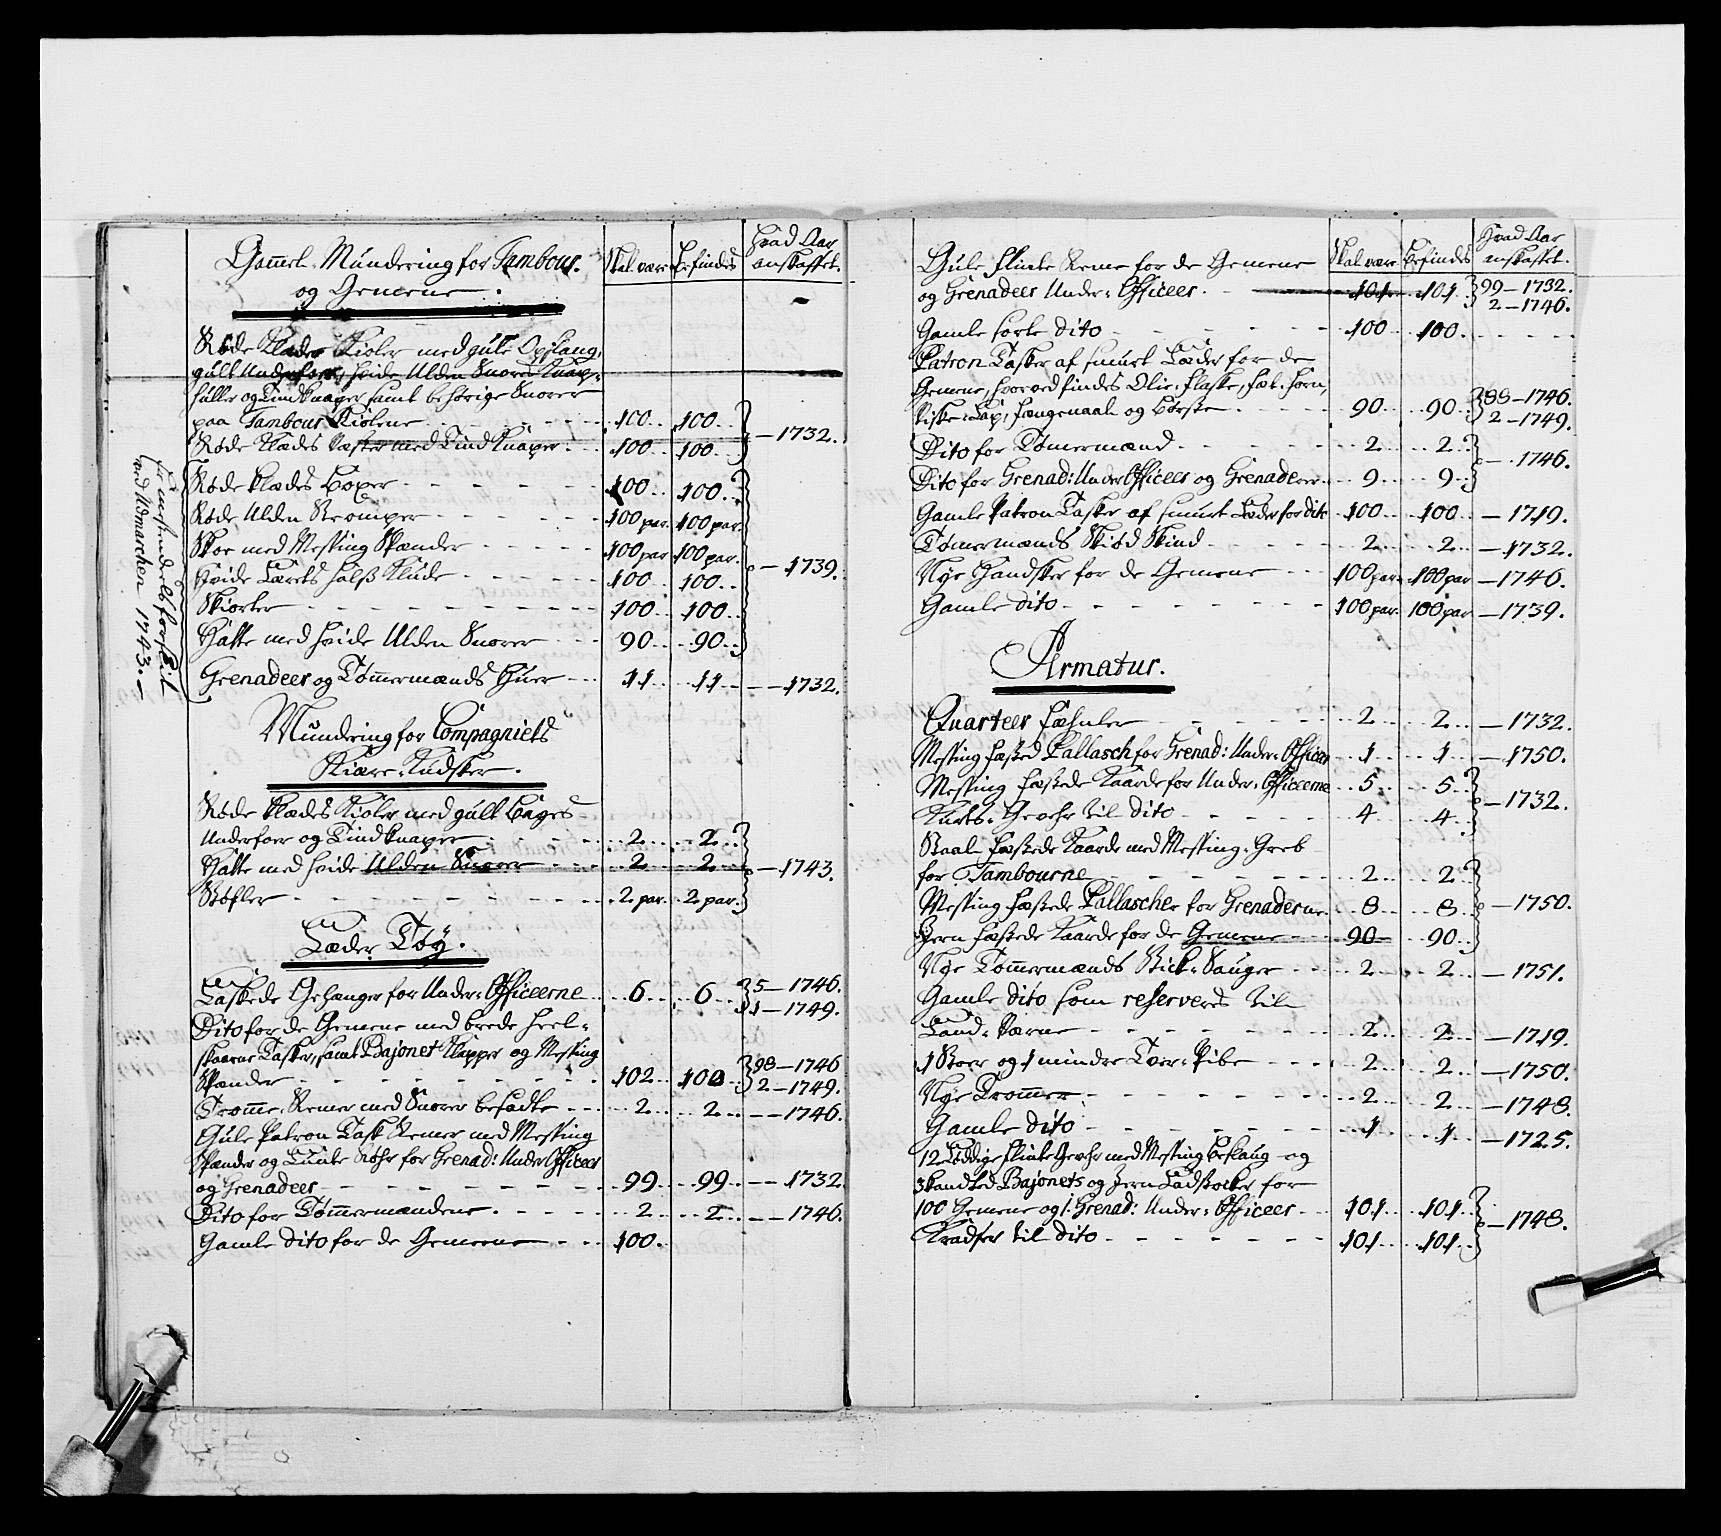 Gamel Mundering for Tambour.
og Gemene.
Skal være
Befindes
Hvad Aar
anskaffet.
Røde Klædes Kioler med gule Opslang,
gult Underfoer, hvide Ulden Snorer Knap-
huller og Tind Knaper samt behörige Snorer
paa Tambour Kiolene 100 100
Røde Klædes Vester med Tind Knaper 100 100 1732.
Røde Klædes Boxer 100 100
Røde Ulden Strömper 100 par 100 par
Skoe med Messing Spænder 100 par 100 par.
Hvide Lærets Halss Klude 100 100 1739.
Skiorter 100 100
Hatte med hvide Ulden Snorer 90 90
Grenadeer og Tømmermænds Huer 11 11 1732.
ved Udmarchen 1743.
Mundering for Compagniets
Kiære-Kudsker.
Røde Klædes Kioler med gult Boyes
Underfoer og Tind Knaper 2 2
Hatte med hvide Ulden Snorer 2 2 1743.
Støfler 2 par 2 par.
Læder Tøÿ.
Laskede Gehænger for Under-Officeerne 6 6 5-1746.
1-1749.
Dito for de Gemene med brede heel-
skaarne Tasker, samt Bajonet Klapper og Messing
Spænder 102 102 98-1746
2-1749.
Tromme-Remer med Snorer besadte 2 2 1746.
Gule Patron Task Remer med Messing
Spænder og Lunte Röhr for Grenad: Under Officeer
og Grenadeer 99 99 1732
Dito for Tømmermændene 2 2 1746.
Gamle dito for de Gemene 100.
Skal være
Befindes
Hvad Aar
anskaffet.
Gule Flinte Reme for de Gemene
og Grenadeer Under-Officeer 101 101 99-1732.
2-1746.
Gamle sorte dito 100 100
Patron Tasker af smurt Læder for de
Gemene, hvorved findes Olie-flaske, fæt-horn,
Viske-Lap, fængenaal og Børste 90 90 88-1746.
2-1749.
Dito for Tømermænd 2 2
Dito for Grenad: Under Officeer og Grenadeerer 9 9 1746.
Gamle Patron Tasker af smurt Læder for dito 100 100 1719.
Tømermænds Skiød Skind 2 2 1732.
Nye Handsker for de Gemene 100 par 100 par 1746.
Gamle dito 100 par. 100 par 1739.
Armatur.
Quarteer Fæhnler 2 2 1732.
Messing fæsted Pallasch for Grenad: Under-Officeer 1 1 1750.
Messing fæstede Kaarde for Under-Officeerne 5 5
Kurts-Gevehr til dito 4 4 1732.
Staal fæstede Kaarde med Messing-Greb
for Tambourne 2 2
Messing fæstede Pallascher for Grenaderne 8 8 1750.
Jern fæstede Kaarde for de Gemene 90 90
Nye Tømmermænds Bick-Sauger 2 2 1751.
Gamle dito som reserveres til
Land-Værne 2 2 1719.
1 Stoer og 1 mindre Tvær-Pibe 2 2 1750.
Nye Trommer 2 2 1748.
Gamle dito 1 1 1725.
12 Løddige Flinte Gevehr med Messing beslaug og
3kandted Bajonets og Jern Ladstocker for
100 Gemene og 1. Grenad: Under-Officeer 101 101
Kradser til dito 101 101 1748.